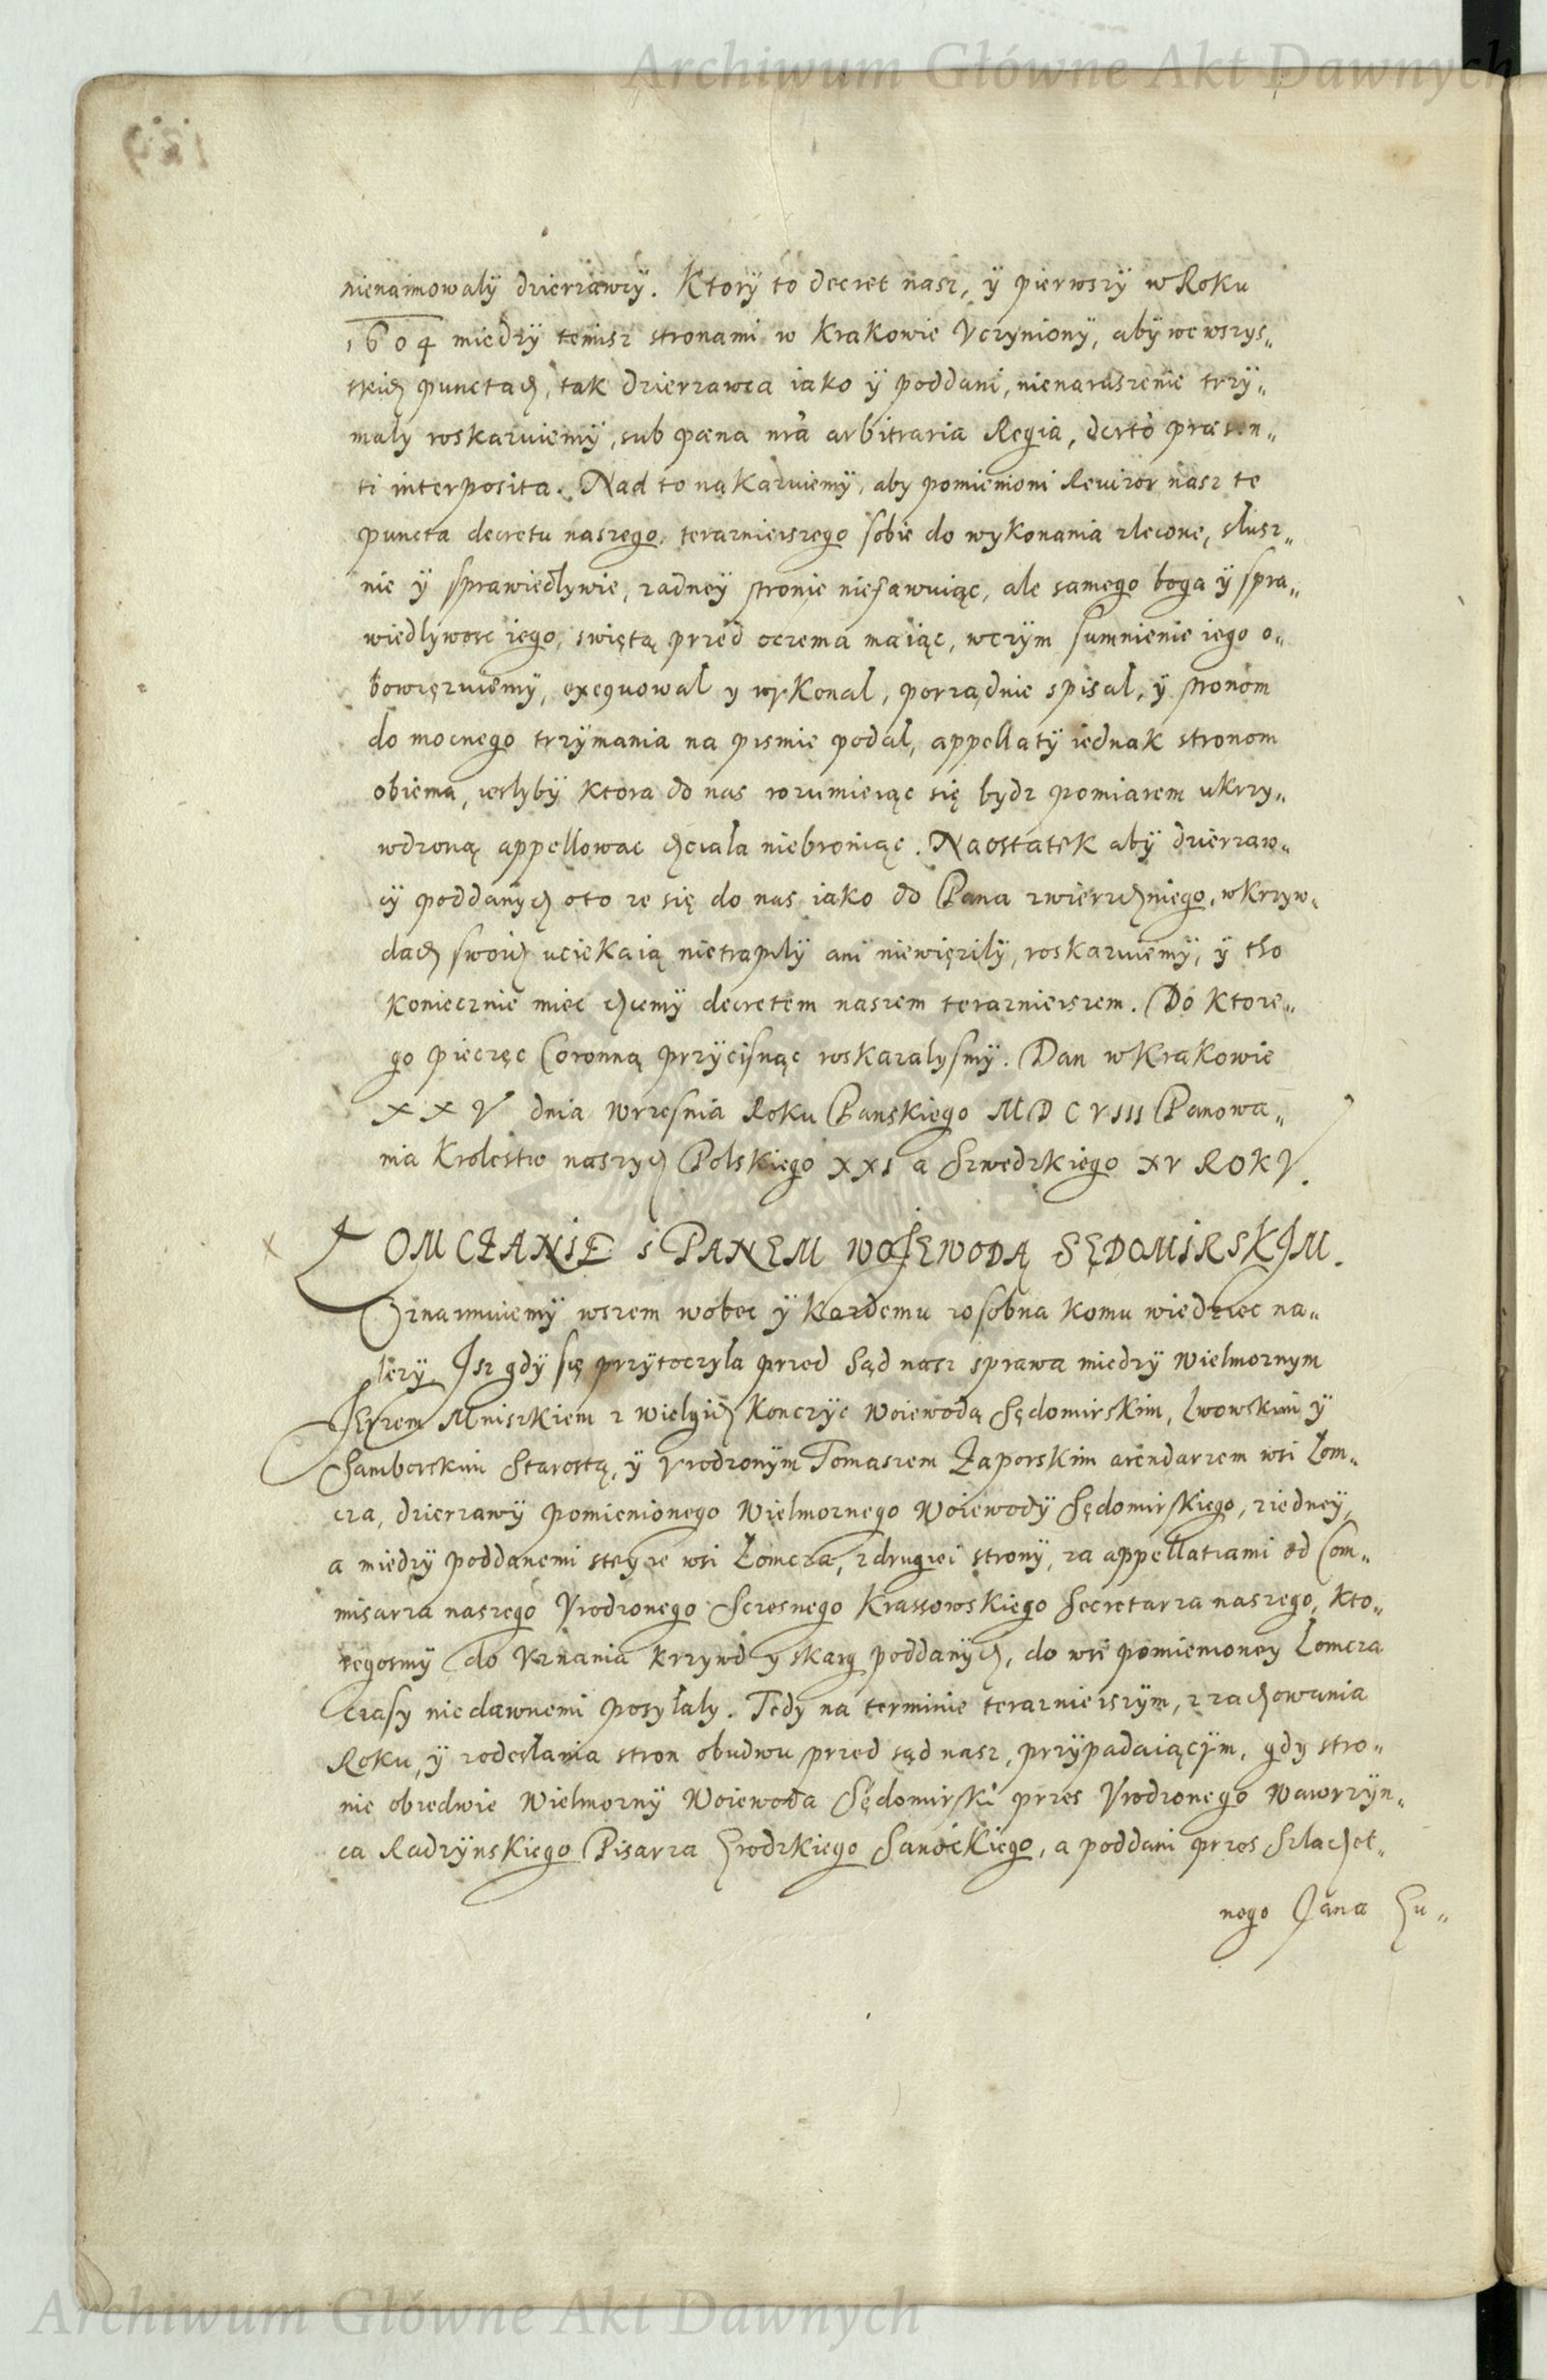 Archiwum Główne Akt Dawnych
nienaimowaly dzierzawzy. Ktory to decret nasz, y pierwszy w Roku
1604 miedzy temisz stronami w Krakowie Vczyniony, aby we wszys„
tkich punctach, tak dzierzawca iako y poddani, nienaruszenie trzy„
maly roskazuiemy, sub pœna nra arbitraria Regia, dcrto præsen„
ti interposita. Nad to nakazuiemy, aby pomienioni Reuizor nasz te
puncta decretu naszego, teraznieiszego sobie do wykonania zlecone, slusz„
nie y sprawiedlywie, zadney stronie niefawuiąc, ale samego boga y spra„
wiedlywosc iego, swiętą przed oczema maiąc, wczym sumnienie iego o„
bowięzuiemy, exequowal y wykonal, porządnie spisal, y stronom
do mocnego trzymania na pismie podal, appellaty iednak stronom
obiema, ieslyby ktora do nas rozumieiąc się bydz pomiarem ukrzy„
wdzoną appellowac chciala niebroniąc. Naostatek aby dzierzaw„
cy poddanych oto ze się do nas iako do Pana zwierzchniego, wkrzyw„
dach swoich uciekaią nietrapily ani niewięzily, roskazuiemy, y tho
koniecznie miec chcemy decretem naszem teraznieiszem. Do ktore„
go pieczęc Coronną przycisnąc roskazalysmy. Dan w Krakowie
XXV dnia Wrzesnia Roku Panskiego MDCVIII Panowa„
nia Krolestw naszych Polskiego XXI a Szwedzkiego XV ROKV.
ŁOMCZANIE S PANEM WOJEWODĄ SĘDOMIRSKJM.
Oznaimuiemy wszem wobec y kazdemu zosobna komu wiedziec na„
lezy. Jsz gdy się przytoczyla przed Sąd nasz sprawa miedzy Wielmoznym
Jerzem Mniszkiem z Wielgich Konczyc Woiewodą Sędomirskim, Lwowskim y
Samborskim Starostą, y Vrodzonym Tomaszem Zaporskim arendarzem wsi Łom„
cza, dzierzawy pomienionego Wielmoznego Woiewody Sędomirskiego, ziedney,
a miedzy poddanemi steyze wsi Łomcza, z drugiei strony, za appellatiami od Com„
misarza naszego Vrodzonego Sczesnego Krassowskiego Secretarza naszego, kto„
regosmy do Vznania krzywd y skarg poddanych, do wsi pomienioney Łomcza
czasy niedawnemi posyłaly. Tedy na terminie teraznieiszym, z zachowania
Roku, y zodesłania stron obudwu przed sąd nasz, przypadaiącym, gdy stro„
nie obzedwie Wielmozny Woiewoda Sędomirski przes Vrodzonego Wawrzyn„
ca Radzynskiego Pisarza Grodzkiego Sanockiego, a poddani przes Szlachet„
nego Jana Gu„
Archiwum Główne Akt Dawnych